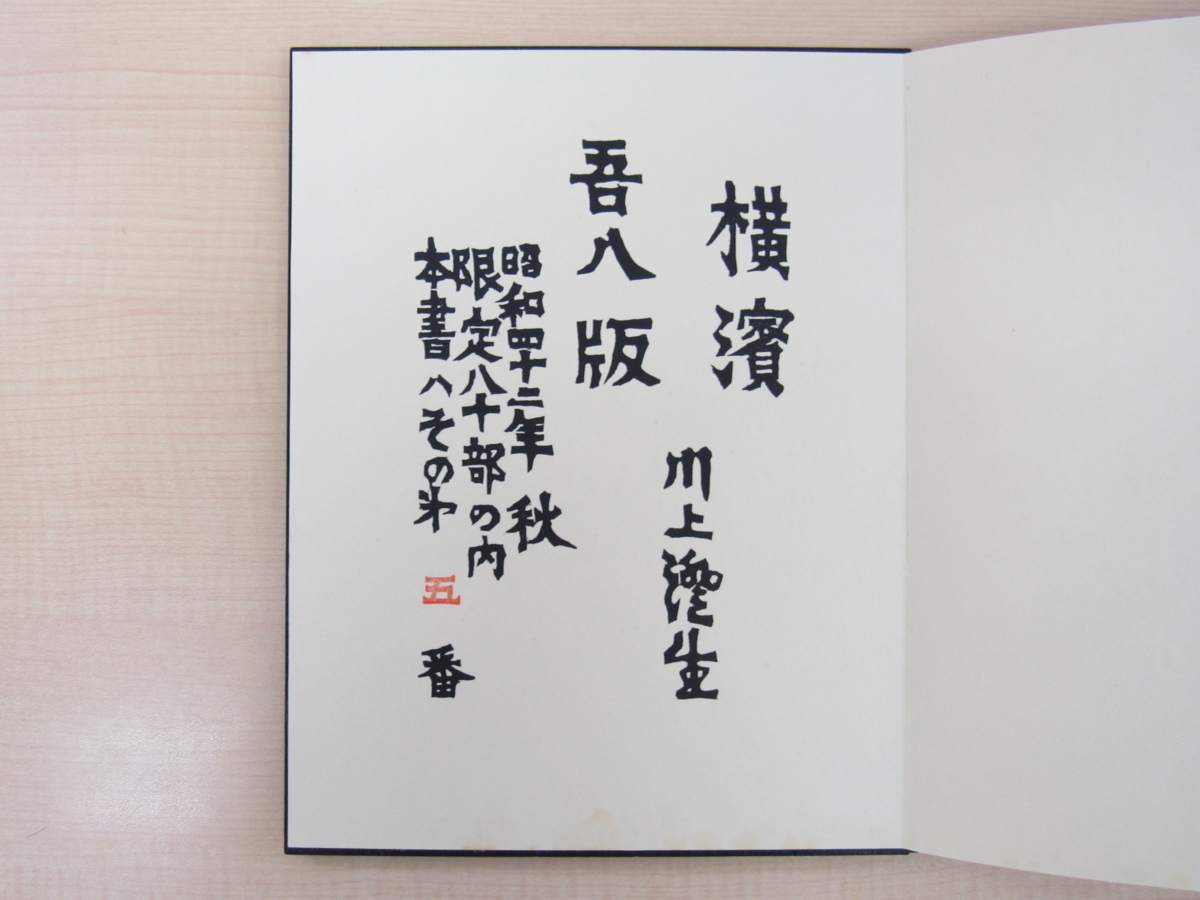 横濱
川上澄生
吾八版
昭和四十二年秋
限定八十部の内
本書ハその第五番